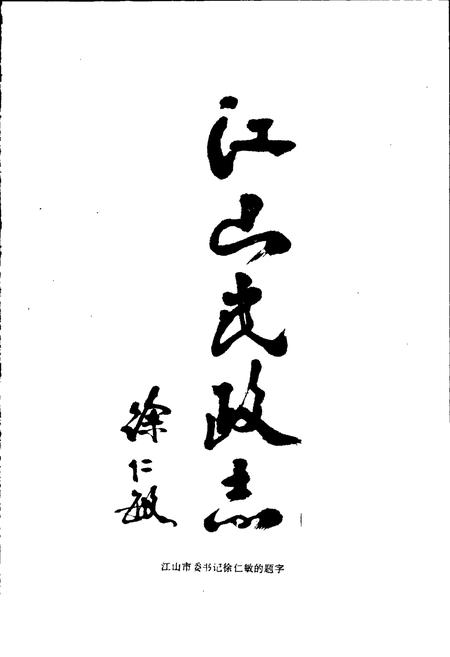 江山民政志
徐仁敏
江山市委书记徐仁敏的题字